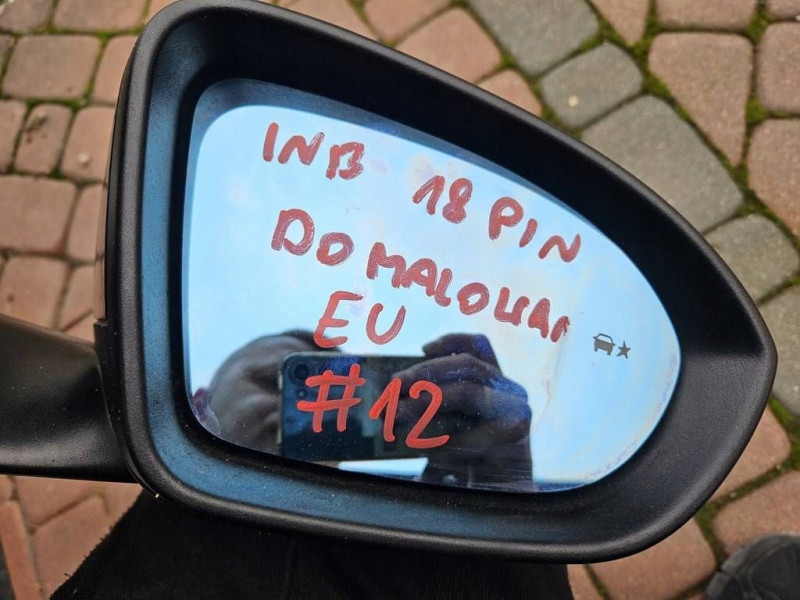 INB 18 PIN
DO MALOWAN
EU
#12